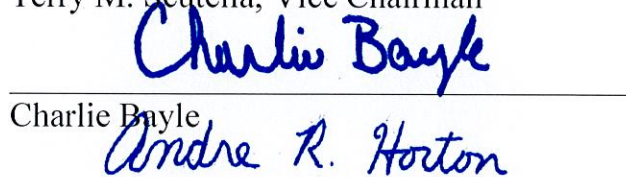 Terry M. Scutella, Vice Chairman
Charlie Bayle
Charlie Bayle
Andre R. Horton